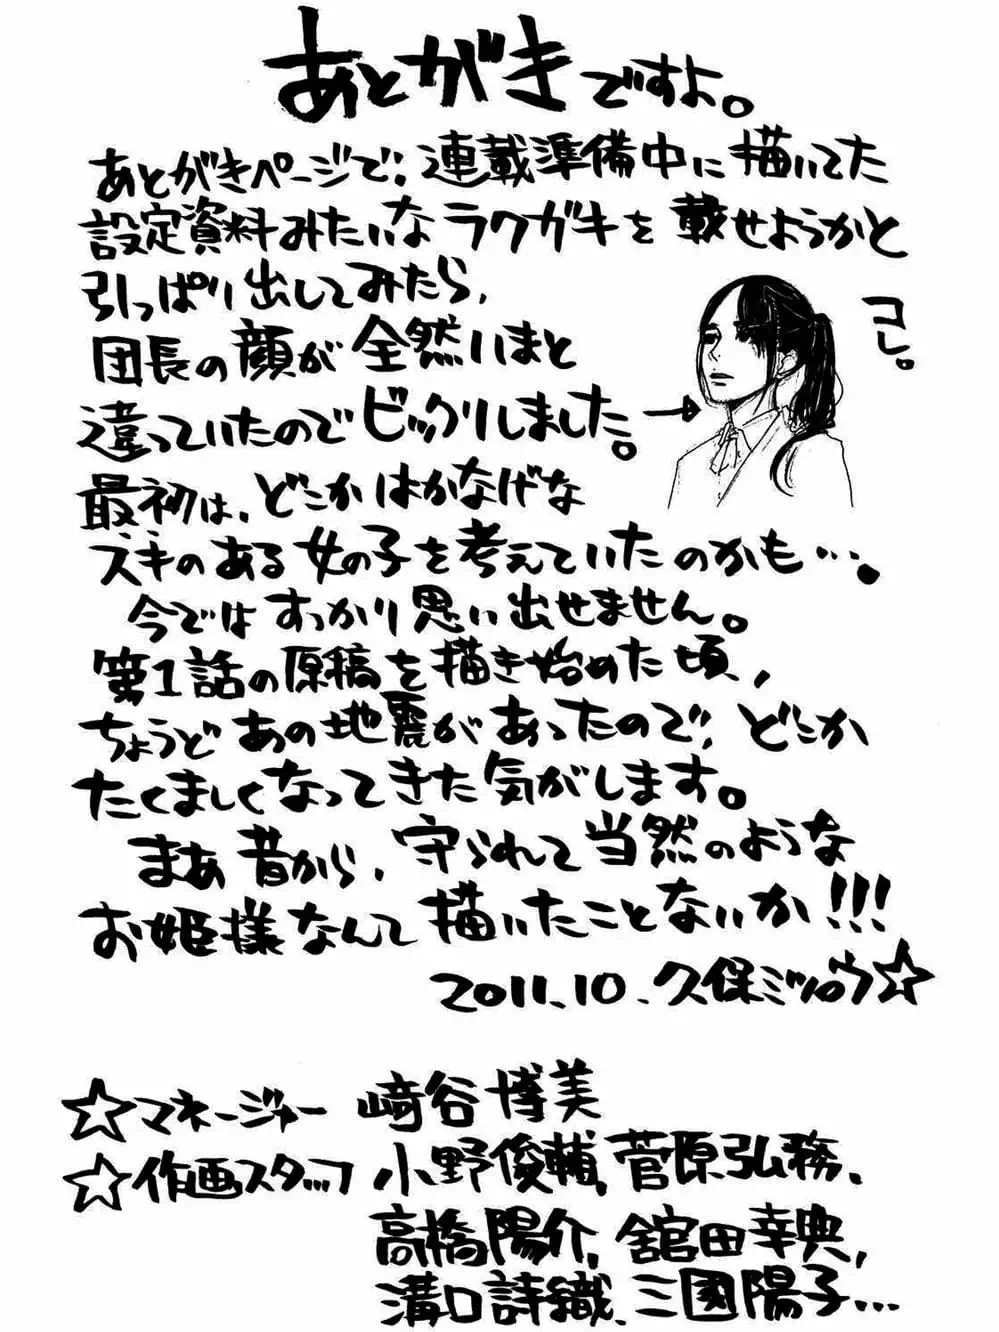 あとがきですよ。
あとがきページで、連載準備中に描いてた
設定資料みたいなラクガキを載せようかと
引っぱり出してみたら、
コレ。
団長の顔が全然いまと
違っていたのでビックリしました。→
最初は、どこかはかなげな
スキのある女の子を考えていたのかも…。
今ではすっかり思い出せません。
第1話の原稿を描き始めた頃、
ちょうどあの地震があったので、どこか
たくましくなってきた気がします。
まあ昔から、守られて当然のような
お姫様なんて描いたことないか!!!
2011.10.久保ミツロウ☆
☆マネージャー 﨑谷博美
☆作画スタッフ 小野俊輔、菅原弘務、
高橋陽介、舘田幸典、
溝口詩織、三國陽子…